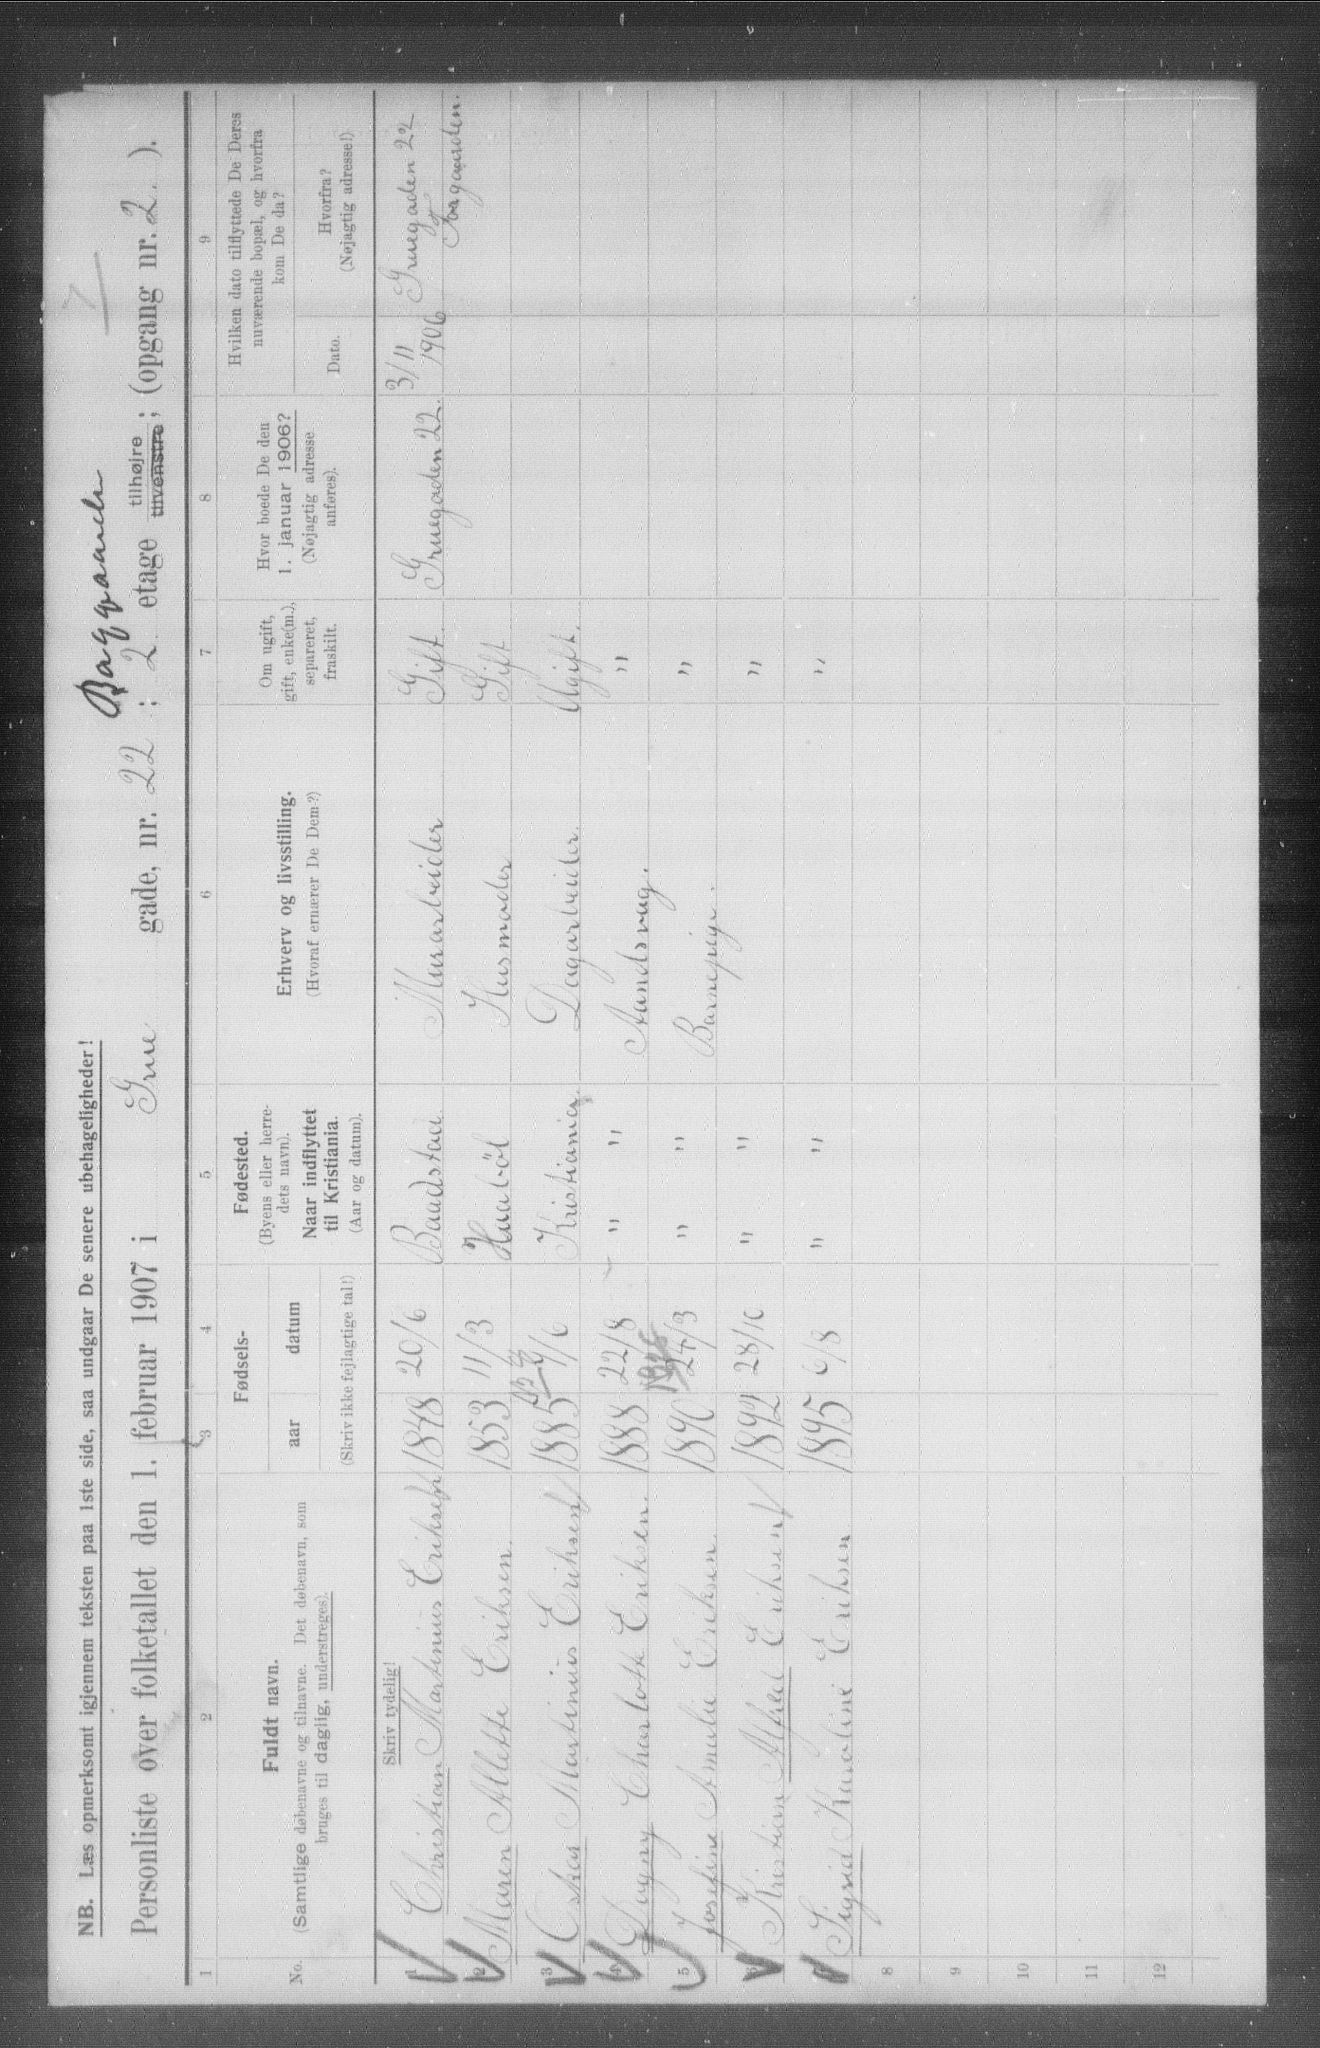 NB. Læs opmerksomt igjennem teksten paa 1ste side, saa undgaar De senere ubehageligheder!
Baggaard
Personliste over folketallet den 1. februar 1907 i Grue gade, nr. 22 ; 2 etage tilhøjre tilvenstre ; (opgang nr. 2. ).
1 2 3 4 5 6 7 8 9
No.
Fuldt navn.
(Samtlige døbenavne og tilnavne. Det døbenavn, som
bruges til daglig, understreges).
Fødsels-
aar datum
(Skriv ikke fejlagtige tal!)
Fødested.
(Byens eller herre-
dets navn).
Naar indflyttet
til Kristiania.
(Aar og datum).
Erhverv og livsstilling.
(Hvoraf ernærer De Dem?)
Om ugift,
gift, enke(m.),
separeret,
fraskilt.
Hvor boede De den
1. januar 1906?
(Nøjagtig adresse
anføres).
Hvilken dato tilflyttede De Deres
nuværende bopæl, og hvorfra
kom De da?
Dato.
Hvorfra?
(Nøjagtig adresse!)
Skriv tydelig!
1 Christian Martinius Eriksen 1848 20/6 Baadstad Murarbeider Gift. Gruegaden 22. 3/11 1906 Gruegaden 22 Forgaarden.
2 Maren Alette Eriksen. 1853 11/3 Haabøl Husmoder Gift
3 Oskar Martinius Eriksen 1885 4/6 Kristiania. Dagarbeider. Ugift.
4 Dagny Charlotte Eriksen. 1888 22/8 " " "
5 Josefine Amalie Eriksen. 1890 24/3 " " Barnepige. "
6 Kristian Alfred Eriksen 1892 28/10 " " "
7 Sigrid Karoline Eriksen 1895 6/8 " " "
8
9
10
11
12